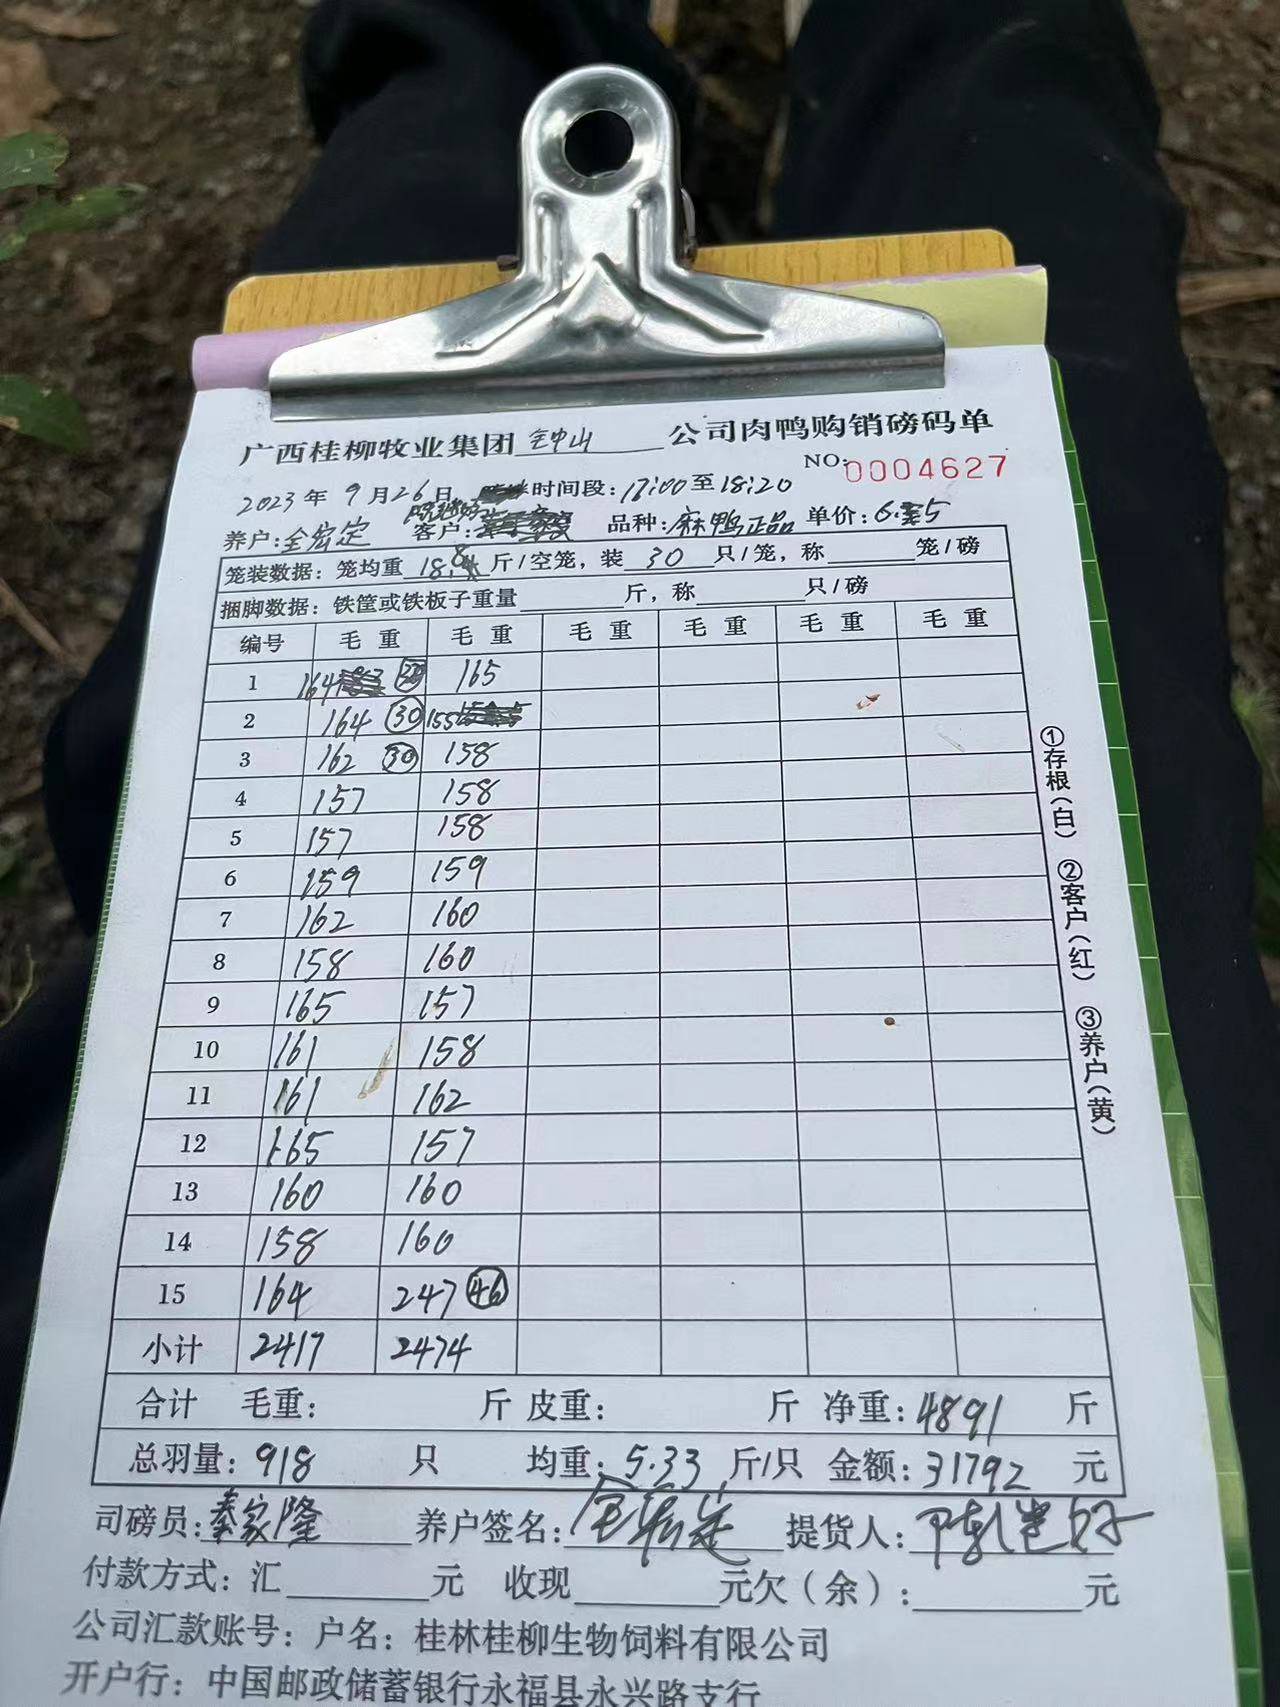 广西桂柳牧业集团 钟山 公司肉鸭购销磅码单
NO:0004627
2023年9月26日 时间段:17:00至18:20
养户:全宏定 客户: 品种:麻鸭正品 单价:6.5
笼装数据:笼均重18.8斤/空笼,装30只/笼,称 笼/磅
捆脚数据:铁筐或铁板子重量 斤,称 只/磅
编号 毛重 毛重 毛重 毛重 毛重 毛重
1 164 165
2 164 30 155
3 162 30 158
4 157 158
5 157 158
6 159 159
7 162 160
8 158 160
9 165 157
10 161 158
11 161 162
12 165 157
13 160 160
14 158 160
15 164 247 46
小计 2417 2474
合计 毛重: 斤 皮重: 斤 净重:4891 斤
总羽量:918 只 均重:5.33 斤/只 金额:31792 元
司磅员:秦家隆 养户签名:全宏定 提货人:
付款方式:汇 元 收现 元欠(余): 元
公司汇款账号:户名:桂林桂柳生物饲料有限公司
开户行:中国邮政储蓄银行永福县永兴路支行
①存根(白) ②客户(红) ③养户(黄)